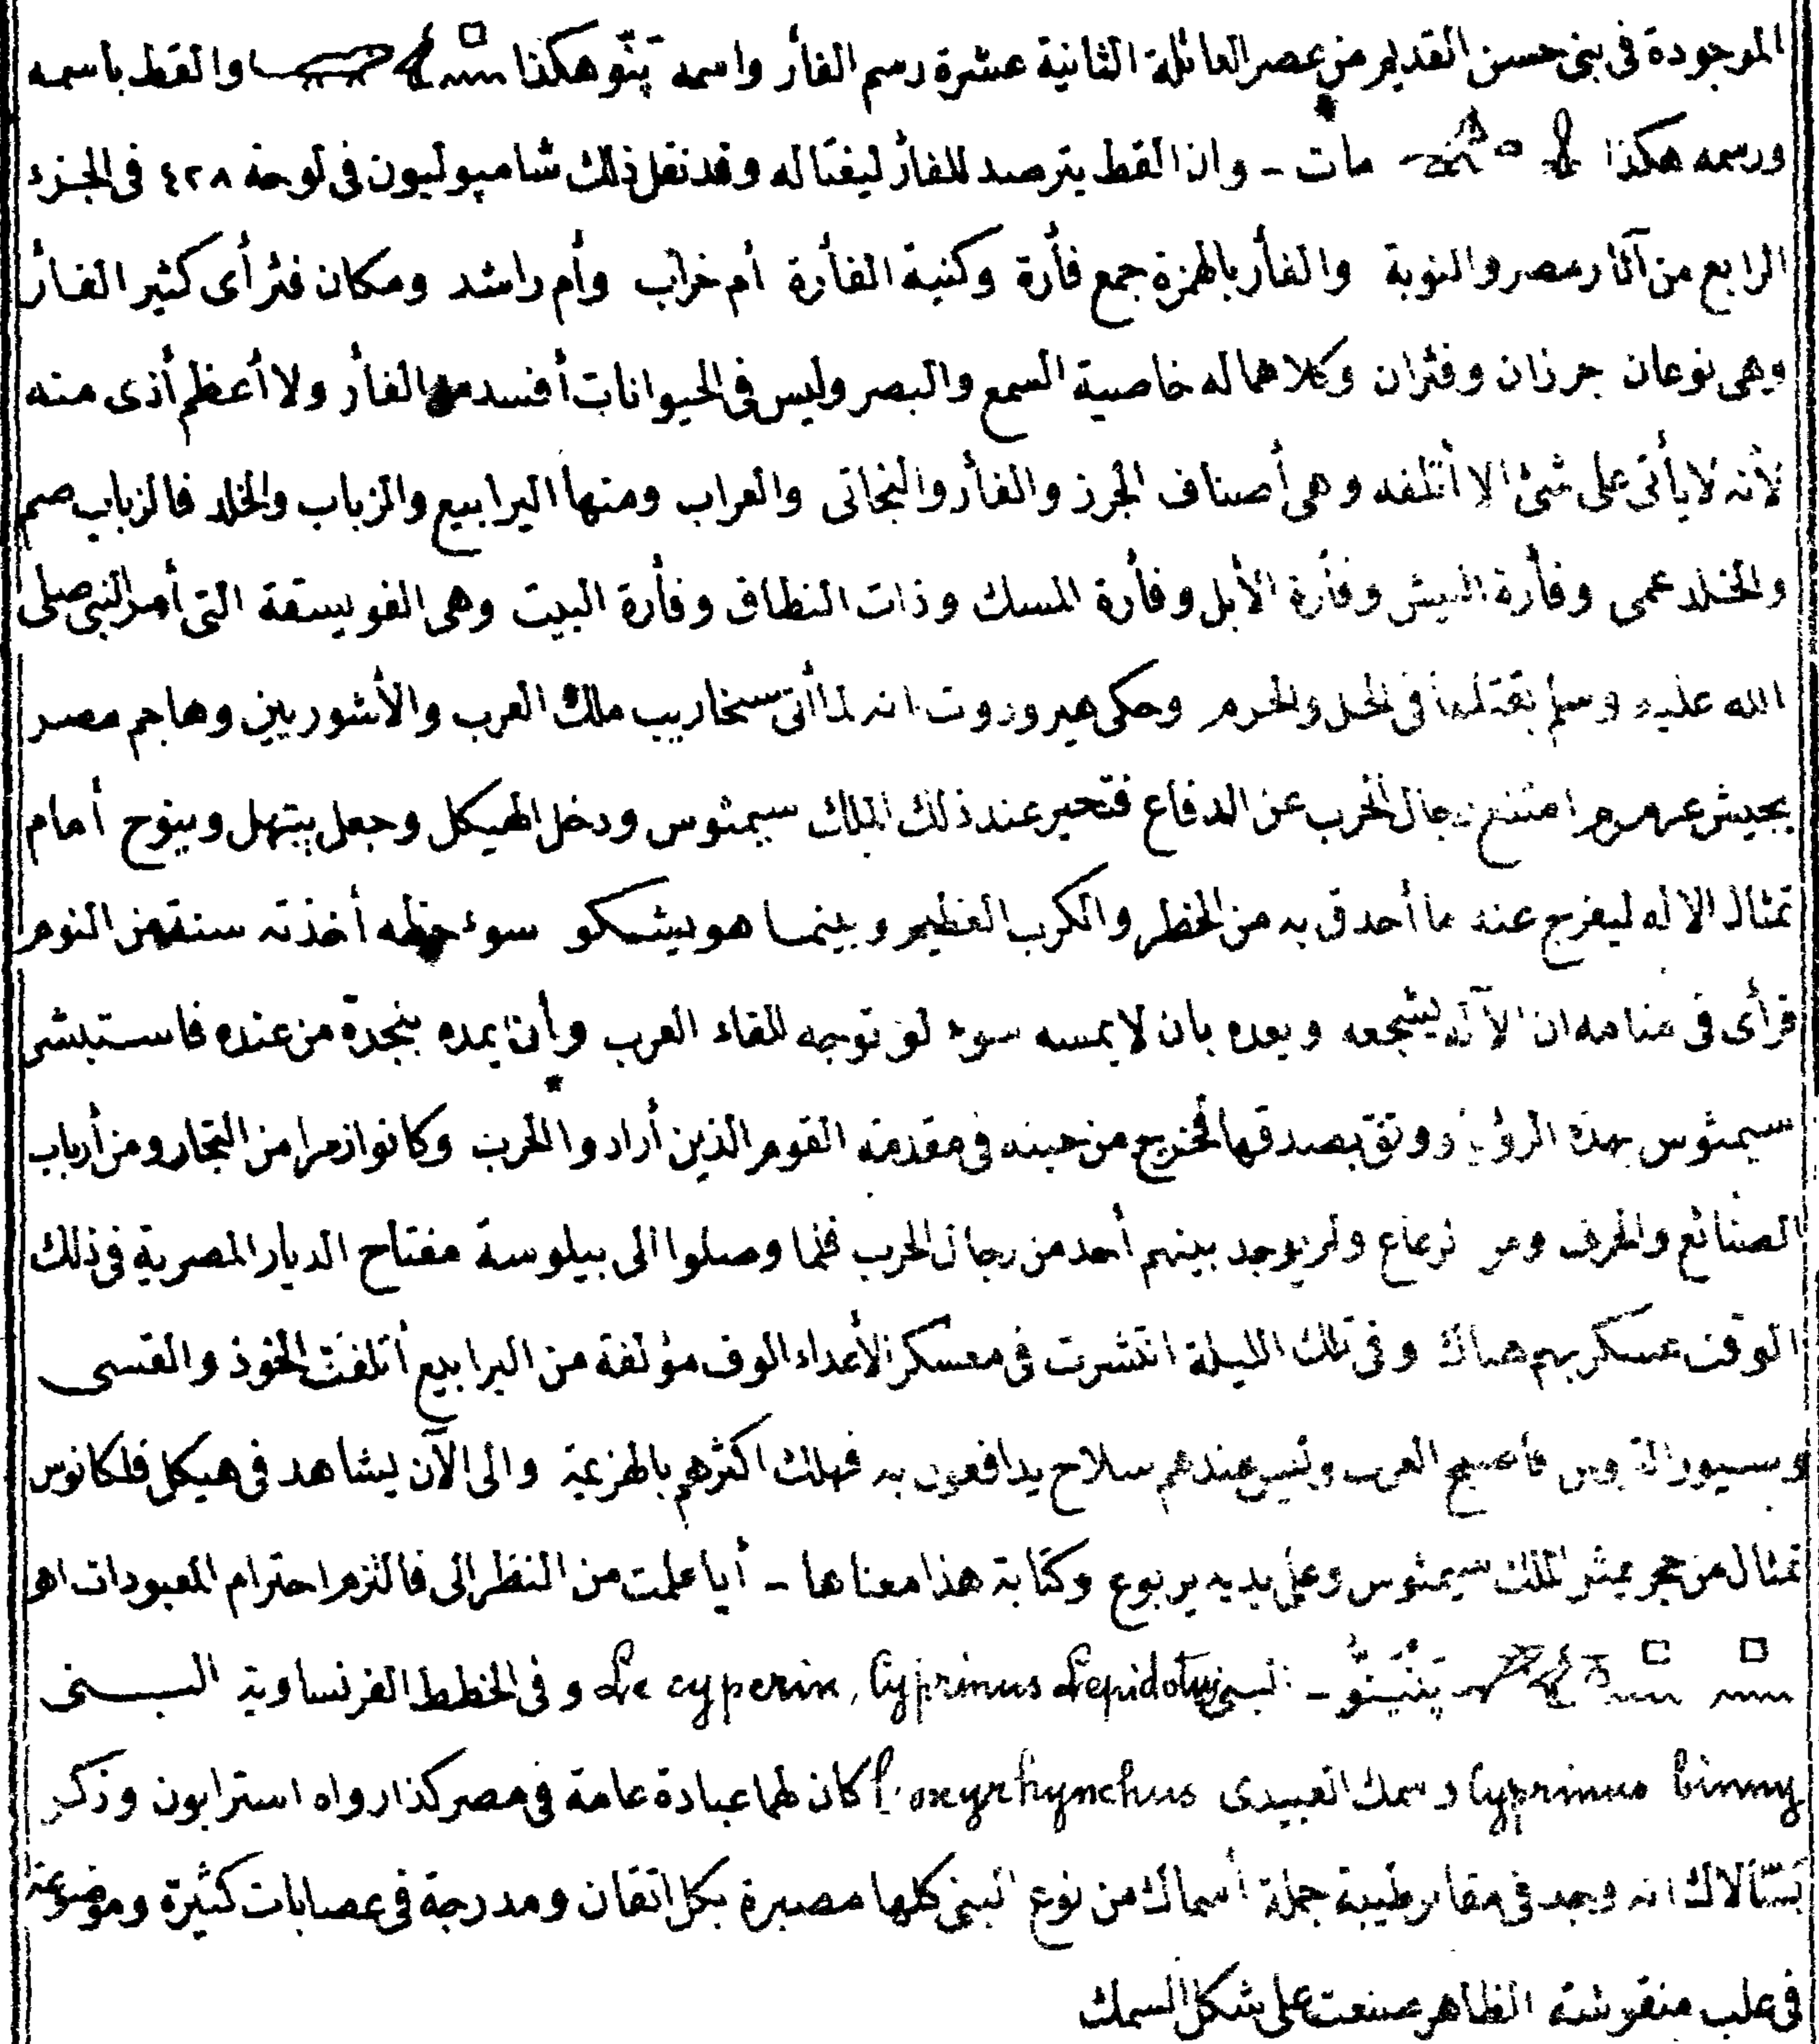 الموجودة فى بنى حسن القديم من عصر العائلة الثانية عشرة رسم الفأر واسمه پَنّو هكذا والقط باسمه
ورسمه هكذا مات - وان القط يترصد للفأر ليغتاله وقد نقل ذلك شامپوليون فى لوحة ٤٢٨ فى الجزء
الرابع من آثار مصر والنوبة والفأر بالهمزة جمع فأرة وكنية الفأرة أم خراب وأم راشد ومكان فئر أى كثير الفأر
وهى نوعان جرزان وفئران وكلاهما له خاصية السمع والبصر وليس فى الحيوانات أفسد من الفأر ولا أعظم أذى منه
لأنه لا يأتى على شئ الا أتلفه وهى أصناف الجرز والفأر والنجاتى والعراب ومنها اليرابيع والزباب والخلد فالزباب صم
والخلد عمى وفأرة البيش وفأرة الأبل وفأرة المسك وذات النطاق وفأرة البيت وهى الفويسقة التى أمر النبى صلى
الله عليه وسلم بقتلها فى الحل والحرم وحكى هيرودوت انه لما أتى سنخاريب ملك العرب والأشوريين وهاجم مصر
بجيش عرمرم امتنع رجال الحرب عن الدفاع فتحير عند ذلك الملك سيمثوس ودخل الهيكل وجعل يبتهل وينوح أمام
تمثال الاله ليفرج عنه ما أحدق به من الخطر والكرب العظيم وبينما هو يشكو سوء حظه أخذته سنة من النوم
فرأى فى منامه ان الآله يشجعه ويعده بان لا يمسه سوء لو توجه للقاء العرب وأن يمده بنجدة من عنده فاستبشر
سيمثوس بهذه الرؤيا ووثق بصدقها فخرج من حينه فى مقدمة القوم الذين أرادوا الحرب وكانوا زمرا من التجار ومن أرباب
الصنائع والحرف ومن رعاع ولم يوجد بينهم أحد من رجال الحرب فلما وصلوا الى بيلوسة مفتاح الديار المصرية فى ذلك
الوقت عسكر بهم هناك وفى تلك الليلة انتشرت فى معسكر الأعداء الوف مؤلفة من اليرابيع أتلفت الخوذ والقسى
وسيور فأصبح العرب وليس عندهم سلاح يدافعون به فهلك اكثرهم بالهزيمة والى الآن يشاهد فى هيكل فلكانوس
تمثال من حجر يمثل الملك سيمثوس وعلى يديه يربوع وكتابة هذا معناها - أيا علمت من النظر الى فالتزم احترام المعبودات اه
پَنْپَنَوُّ - البنى Le cyperin, Cyprinus Lepidotus وفى الخطط الفرنساوية البنى
Cyprinus binny وسمك القبيدى l'oxyrhynchus كان لهما عبادة عامة فى مصر كذا رواه استرابون وذكر
بَسّالاك انه وجد فى مقابر طيبة جملة أسماك من نوع البنى كلها مصبرة بكل اتقان ومدرجة فى عصابات كثيرة وموضوعة
فى علب منقوشة الظاهر صنعت على شكل السمك